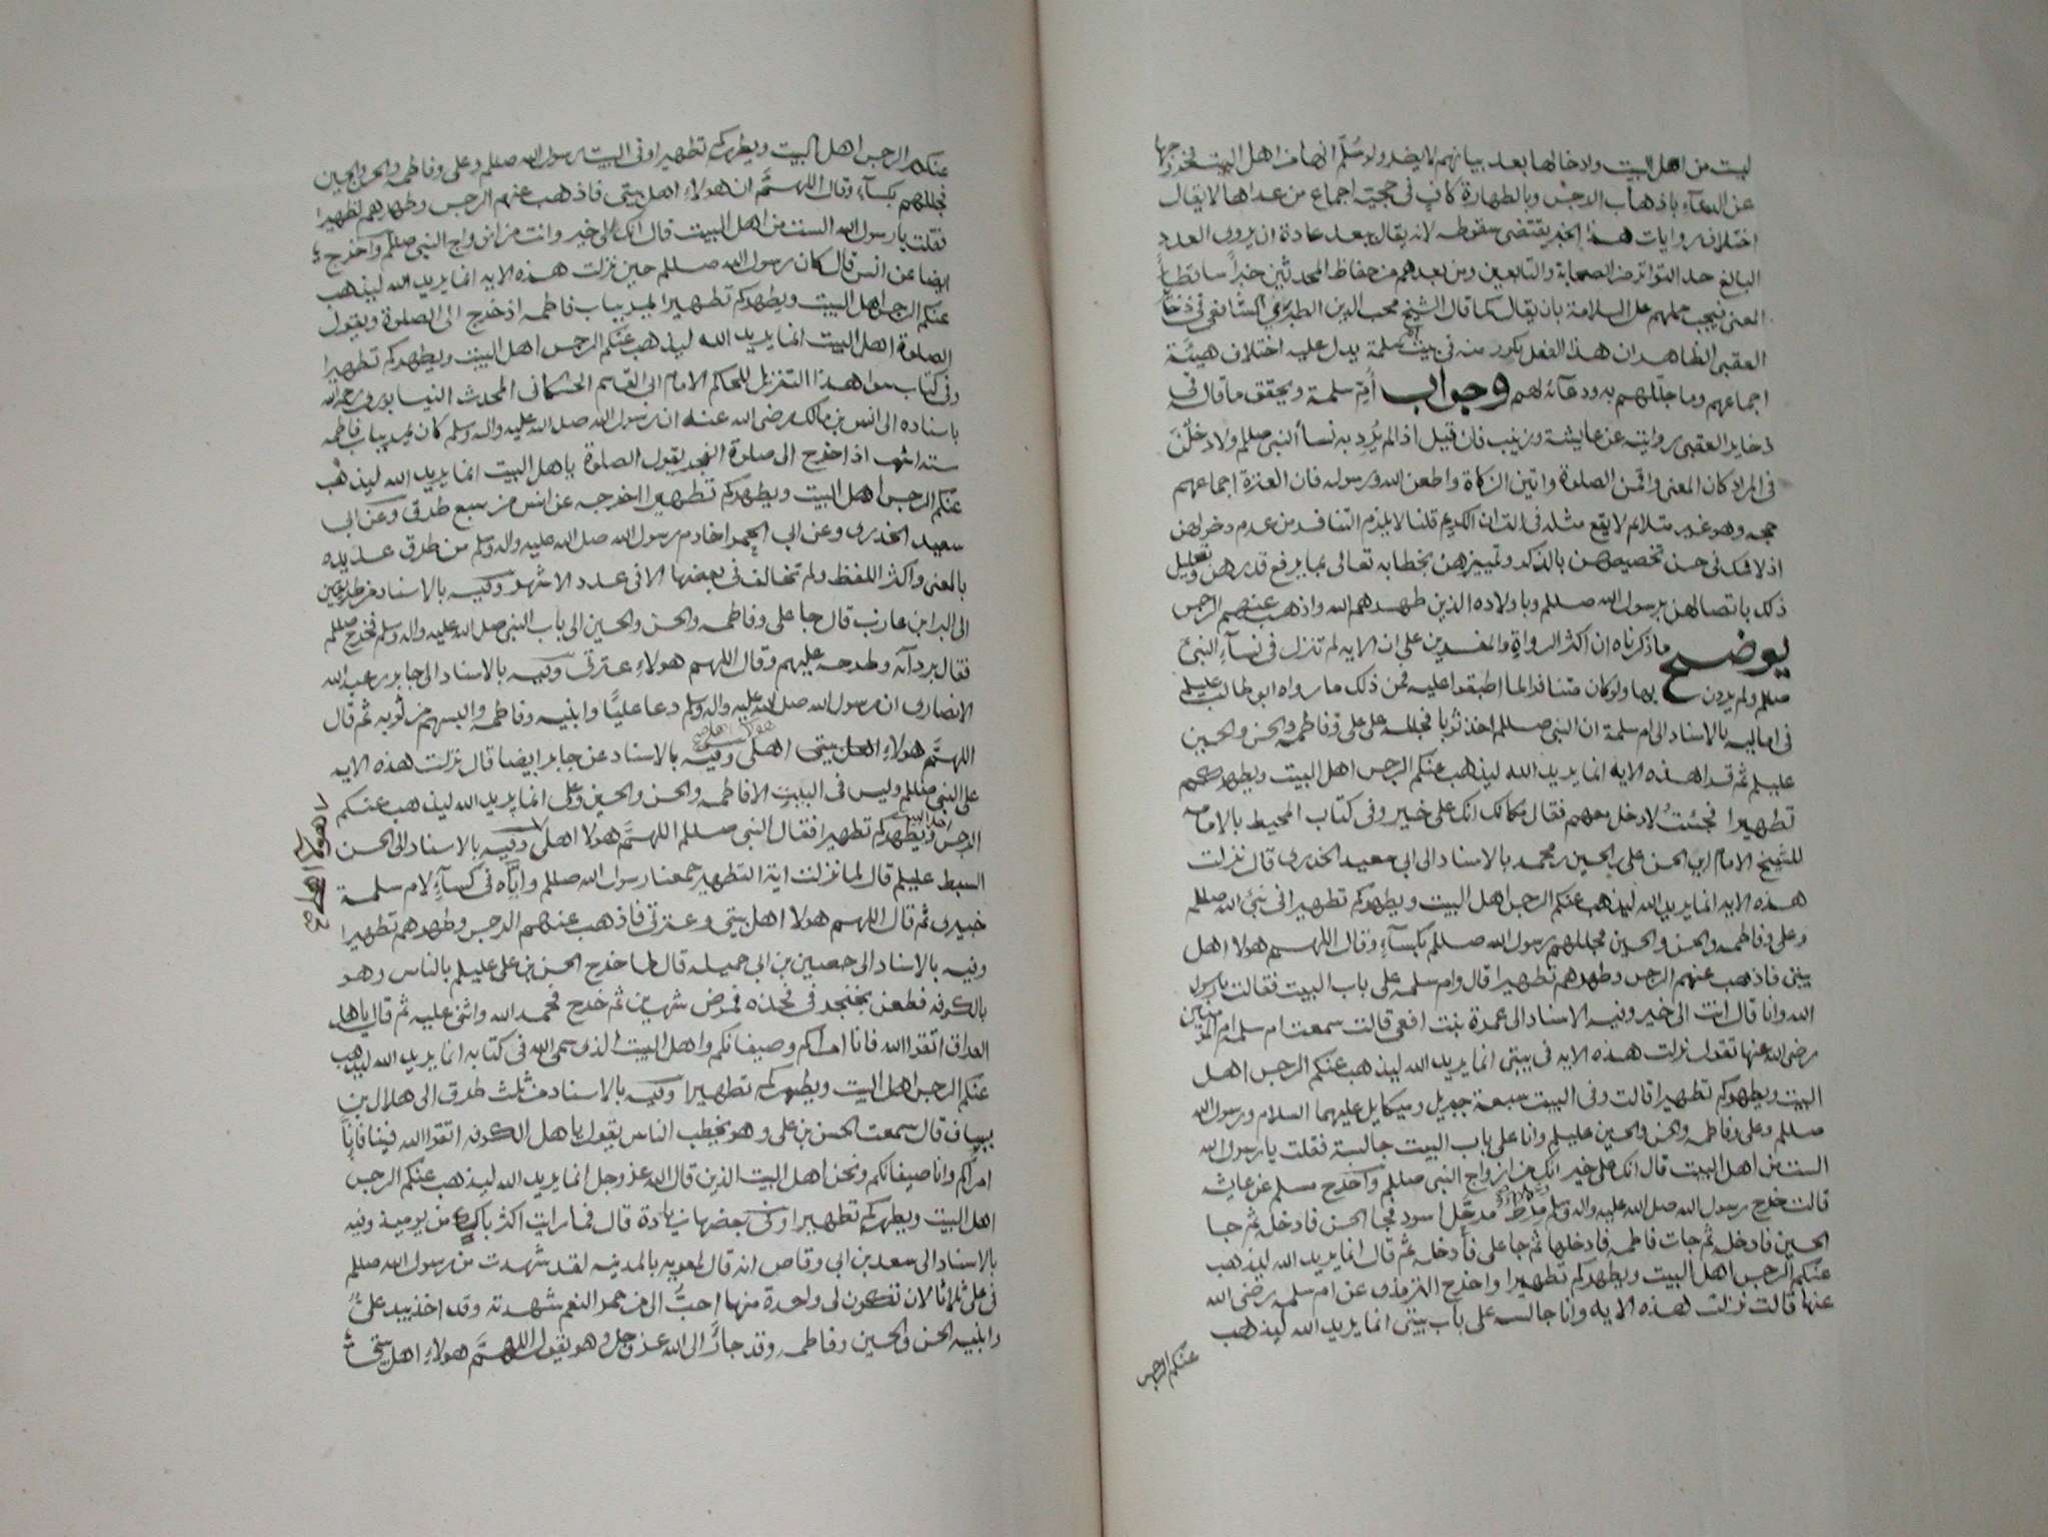 ليست من اهل البيت ولادخالها بعد بيانهم لا يضد ولو سُلّم انها من اهل البيت فخروجها
عن الدعآء باذهاب الرجس وبالطهارة كافٍ في حجية اجماع من عداها لا يقال
اختلاف روايات هذا الخبر يقتضى سقوطه لانه يقال يبعد عادة ان يروى العدد
البالغ حد التواتر من الصحابة والتابعين ومن بعدهم من حفاظ المحدثين خبراً ساقطاً
المعنى فيجب حملهم على السلامة بان يقال كما قال الشيخ محب الدين الطبري الشافعى في ذخائر
العقبى الظاهر ان هذا الفعل تكرر منه في بيت ام سلمة يدل عليه اختلاف هيئة
اجماعهم وما جللهم به ودعآئه لهم وجواب أُمّ سلمة ويحقق ما قال في
ذخاير العقبى روايته عن عايشة وزينب فان قيل اذا لم يُرِد به نسأ النبى صللم ولا دخلْنَ
في المراد كان المعنى واقمن الصلوة واتين الزكاة واطعن الله ورسوله فان العترة اجماعهم
حجه وهو غير متلائم لا يقع مثله في القران الكريم قلنا لا يلزم التنافر من عدم دخولهن
اذ لا شك في حسن تخصيصهن بالذكر وتمييزهن بخطابه تعالى بما يرفع قدرهن وتعليل
ذلك باتصالهن برسول الله صللم وباولاده الذين طهرهم الله واذهب عنهم الرجس
يوضح ما ذكرناه ان اكثر الرواة والمفسرين على ان الايه لم تنزل في نسآءِ النبىّ
صللم ولم يردن بها ولو كان متنافرا لما اطبقوا عليه فمن ذلك ما رواه ابو طالب عليلم
في اماليه بالاسناد الى ام سلمة ان النبى صللم اخذ ثوبا فجلله على على وفاطمه والحسن والحسين
عليلم ثم قرا هذه الايه انما يريد الله ليذهب عنكم الرجس اهل البيت ويطهركم
تطهيرا فجئتُ لادخل معهم فقال مكانك انك على خير وفى كتاب المحيط بالامامه
للشيخ الامام ابى الحسن على بن الحسين بن محمد بالاسناد الى ابى سعيد الخدرى قال نزلت
هذه الايه انما يريد الله ليذهب عنكم الرجس اهل البيت ويطهركم تطهيرا في نبى الله صللم
وعلى وفاطمه والحسن والحسين فجللهم رسول الله صللم بكسآءٍ وقال اللهم هولا اهل
بيتى فاذهب عنهم الرجس وطهرهم تطهيرا قال وام سلمه على باب البيت فقالت يارسول
الله وانا قال انت الى خير وفيه الاسناد الى عمرة بنت افعى قالت سمعت ام سلمه ام المؤمنين
رضى الله عنها تقول نزلت هذه الايه في بيتى انما يريد الله ليذهب عنكم الرجس اهل
البيت ويطهركم تطهيرا قالت وفى البيت سبعة جبريل وميكايل عليهما السلام ورسول الله
صللم وعلى وفاطمه والحسن والحسين عليلم وانا على باب البيت جالسة فقلت يا رسول الله
الست من اهل البيت قال انك على خير انك من ازواج النبى صللم واخرج مسلم عن عايشه
قالت خرج رسول الله صل الله عليه واله وسلم مِرْط مرحّل اسود فجا الحسن فادخله ثم جا
الحسين فادخله ثم جات فاطمه فادخلها ثم جا على فأدخله ثم قال انما يريد الله ليذهب
عنكم الرجس اهل البيت ويطهركم تطهيرا واخرج الترمذى عن ام سلمه رضى الله
عنها قالت نزلت هذه الايه وانا جالسه على باب بيتى انما يريد الله ليذهب
عنكم الرجس
عنكم الرجس اهل البيت ويطهركم تطهيرا وفى البيت رسول الله صللم وعلى وفاطمه والحسن والحسين
فجللهم بكسآءٍ وقال اللهمَّ ان هولاءِ اهل بيتى فاذهب عنهم الرجس وطهرهم تطهيرا
فقلت يا رسول الله الست من اهل البيت قال انك الى خير وانت من ازواج النبى صللم واخرج
ايضا عن انس قال كان رسول الله صللم حين نزلت هذه الايه انما يريد الله ليذهب
عنكم الرجس اهل البيت ويطهركم تطهيرا يمر بباب فاطمه اذ خرج الى الصلوة ويقول
الصلوة اهل البيت انما يريد الله ليذهب عنكم الرجس اهل البيت ويطهركم تطهيرا
وفى كتاب شواهد التنزيل للحاكم الامام ابى القاسم الحسكانى المحدث النيسابورى رحمه الله
باسناده الى انس بن مالك رضى الله عنه ان رسول الله صل الله عليه واله وسلم كان يمر بباب فاطمه
ستة اشهر اذا خرج الى صلوة الفجر يقول الصلوة يا اهل البيت انما يريد الله ليذهب
عنكم الرجس اهل البيت ويطهركم تطهيرا اخرجه عن انس من سبع طرق وعن ابى
سعيد الخدرى وعن ابى الحمرا خادم رسول الله صل الله عليه واله وسلم من طرق عديده
بالمعنى واكثر اللفظ ولم تخالف في بعضها الا في عدد الاشهر وفيه بالاسناد من طريقين
الى البرا بن عازب قال جا على وفاطمه والحسن والحسين الى باب النبى صل الله عليه واله وسلم فخرج صللم
فقال بردآئه وطرحه عليهم وقال اللهم هولاءِ عترتى وفيه بالاسناد الى جابر بن عبد الله
الانصارى ان رسول الله صل الله عليه واله وسلم دعا عليًّا وابنيه وفاطمه والبسهم من ثوبه ثم قال
اللهمَّ هولاءِ اهل بيتى اهلى وفيه بالاسناد عن جابر ايضا قال نزلت هذه الايه
على النبى صللم وليس في البيت الا فاطمه والحسن والحسين وعلى انما يريد الله ليذهب عنكم
الرجس اهل البيت ويطهركم تطهيرا فقال النبى صللم اللهمَّ هولا اهلى وفيه بالاسناد الى الحسن
السبط عليلم قال لما نزلت اية التطهير جمعنا رسول الله صللم واياه في كسآءٍ لام سلمة
خيبرى ثم قال اللهم هولا اهل بيتى وعترتى فاذهب عنهم الرجس وطهرهم تطهيرا
وفيه بالاسناد الى حصين بن ابى جميله قال لما خرج الحسن بن على عليلم بالناس وهو
بالكوفه فطعن بخنجر في فخذه فمرض شهرين ثم خرج فحمد الله واثنى عليه ثم قال يا اهل
العراق اتقوا الله فانا امراكم وضيفانكم واهل البيت الذى سمى الله في كتابه انما يريد الله ليذهب
عنكم الرجس اهل البيت ويطهركم تطهيرا وفيه بالاسناد من ثلث طرق الى هلال بن
يساف قال سمعت الحسن بن على وهو يخطب الناس يقول يا اهل الكوفه اتقوا الله فينا فانا
امراكم وانا ضيفانكم ونحن اهل البيت الذين قال الله عز وجل انما يريد الله ليذهب عنكم الرجس
اهل البيت ويطهركم تطهيرا وفى بعضها زيادة قال فما رايت اكثر باكيا من يوميذ وفيه
بالاسناد الى سعد بن ابى وقاص انه قال لمعويه بالمدينه لقد شهدت من رسول الله صللم
في على ثلاثا لان تكون لى واحدة منها احبُّ الى من حمر النعم شهدته وقد اخذ بيد علىٍّ
وابنيه الحسن والحسين وفاطمه وقد جأر الى الله عز وجل وهو يقول اللهمَّ هولاءِ اهل بيتى